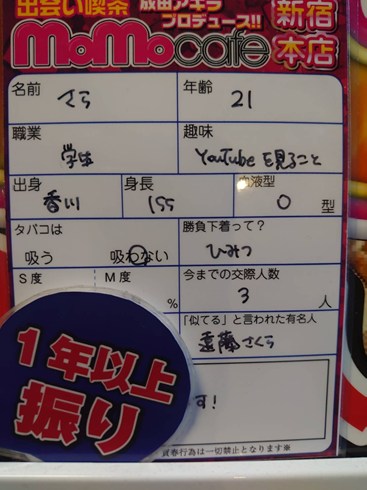 出会い喫茶 成田アキラ プロデュース!! 新宿本店
MoMocafe
名前 さら 年齢 21
職業 学生 趣味 YouTubeを見ること
出身 香川 身長 155 血液型 O 型
タバコは 吸う 吸わない 勝負下着って? ひみつ
S度 M度 % 今までの交際人数 3 人
「似てる」と言われた有名人 遠藤さくら
1年以上振り
す!
買春行為は一切禁止となります※